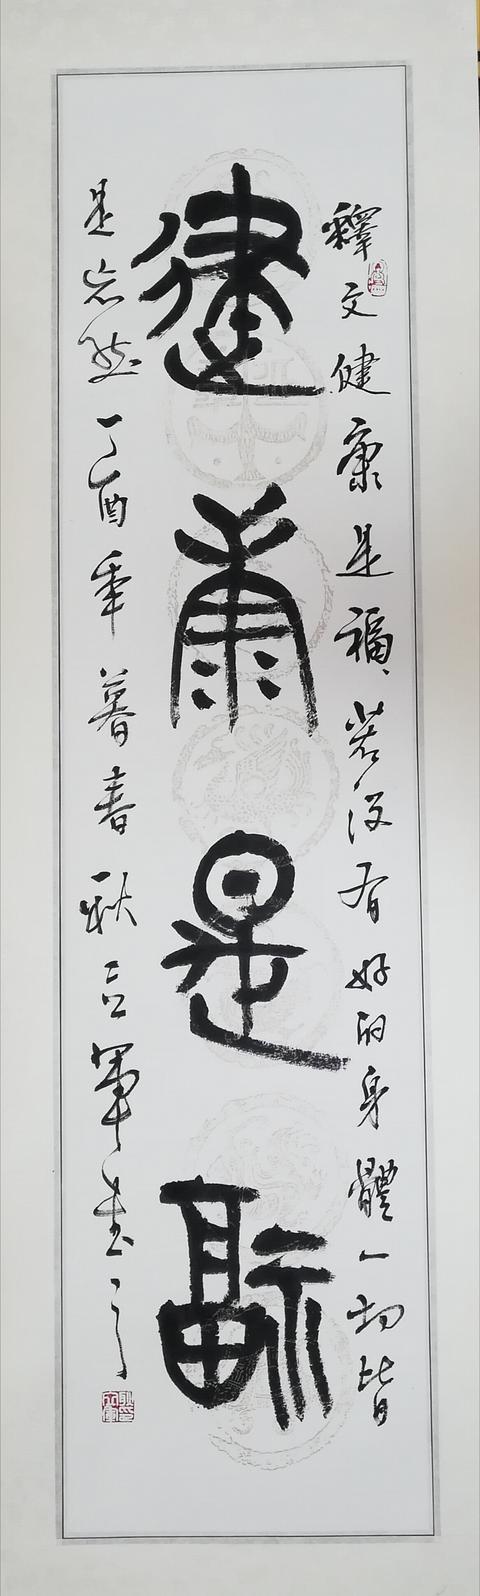 釋文健康是福、若没有好的身體一切皆
健康是福
是然丁酉年暮春軍書